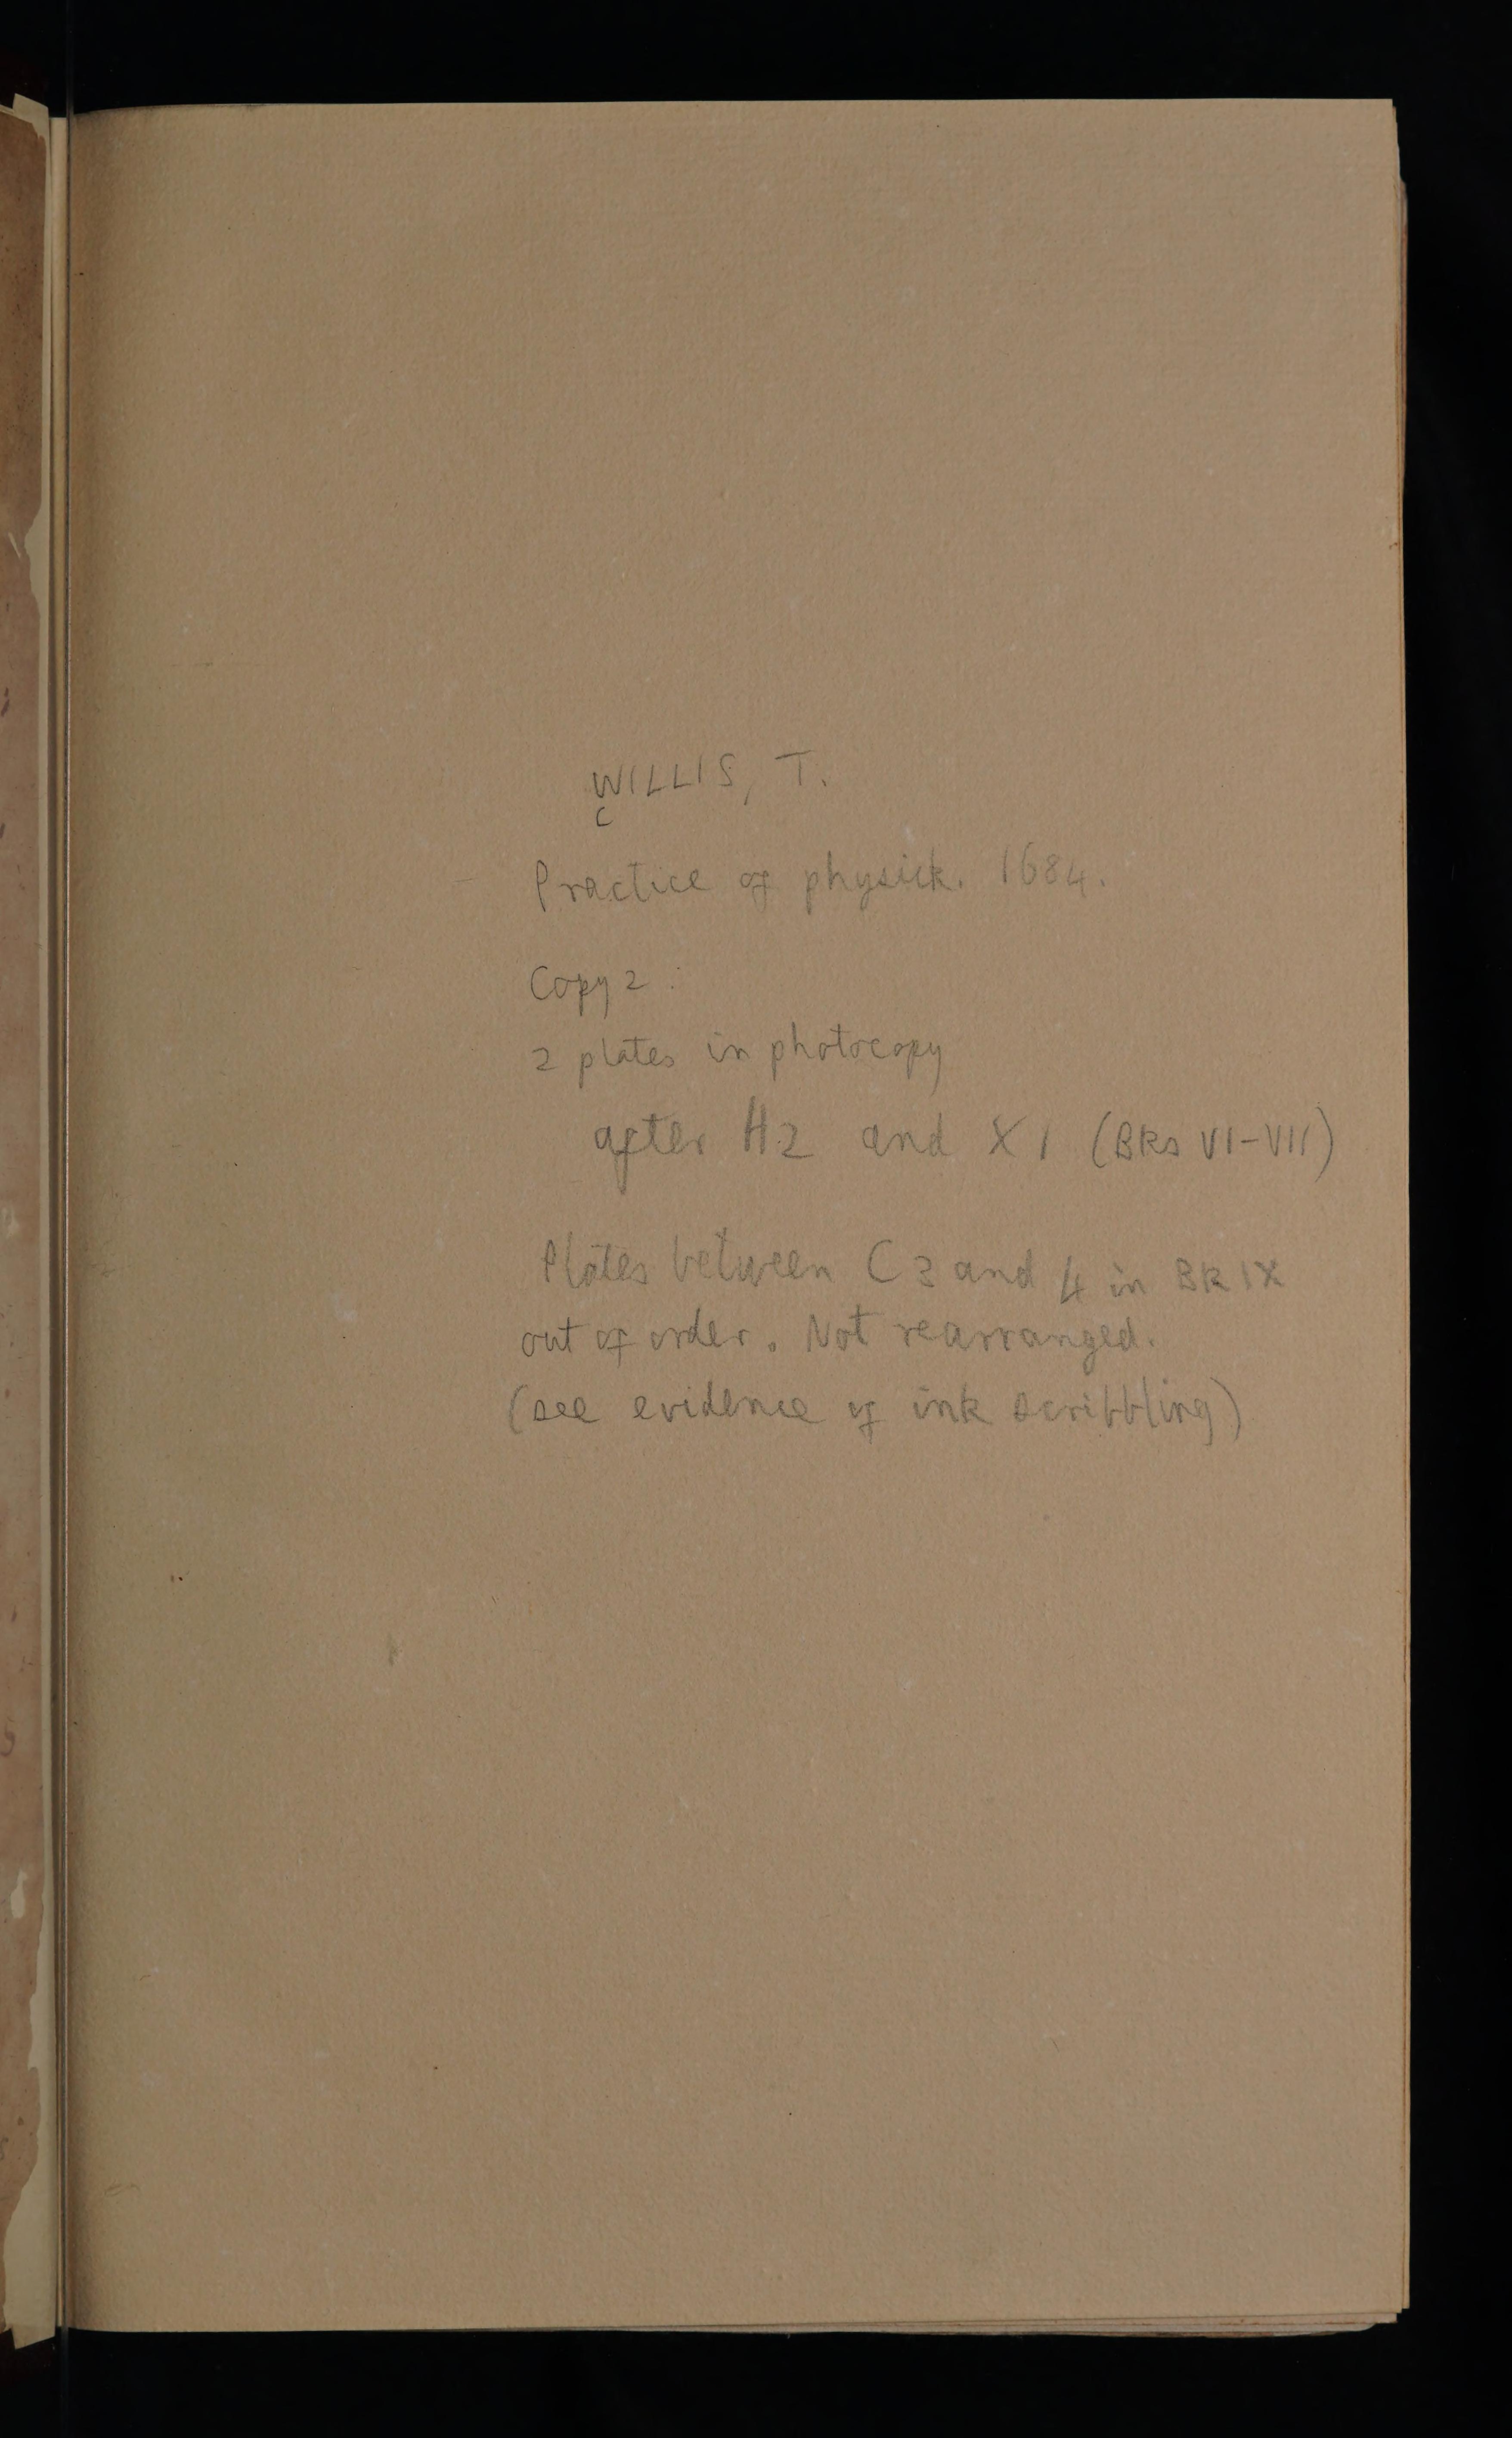 WILLIS, T.
c
Practice of physick. 1684.
Copy 2 :
2 plates in photocopy
after H2 and X1 (Bks VI-VII)
Plates between C3 and 4 in Bk IX
out of order. Not rearranged.
(see evidence of ink scribbling)